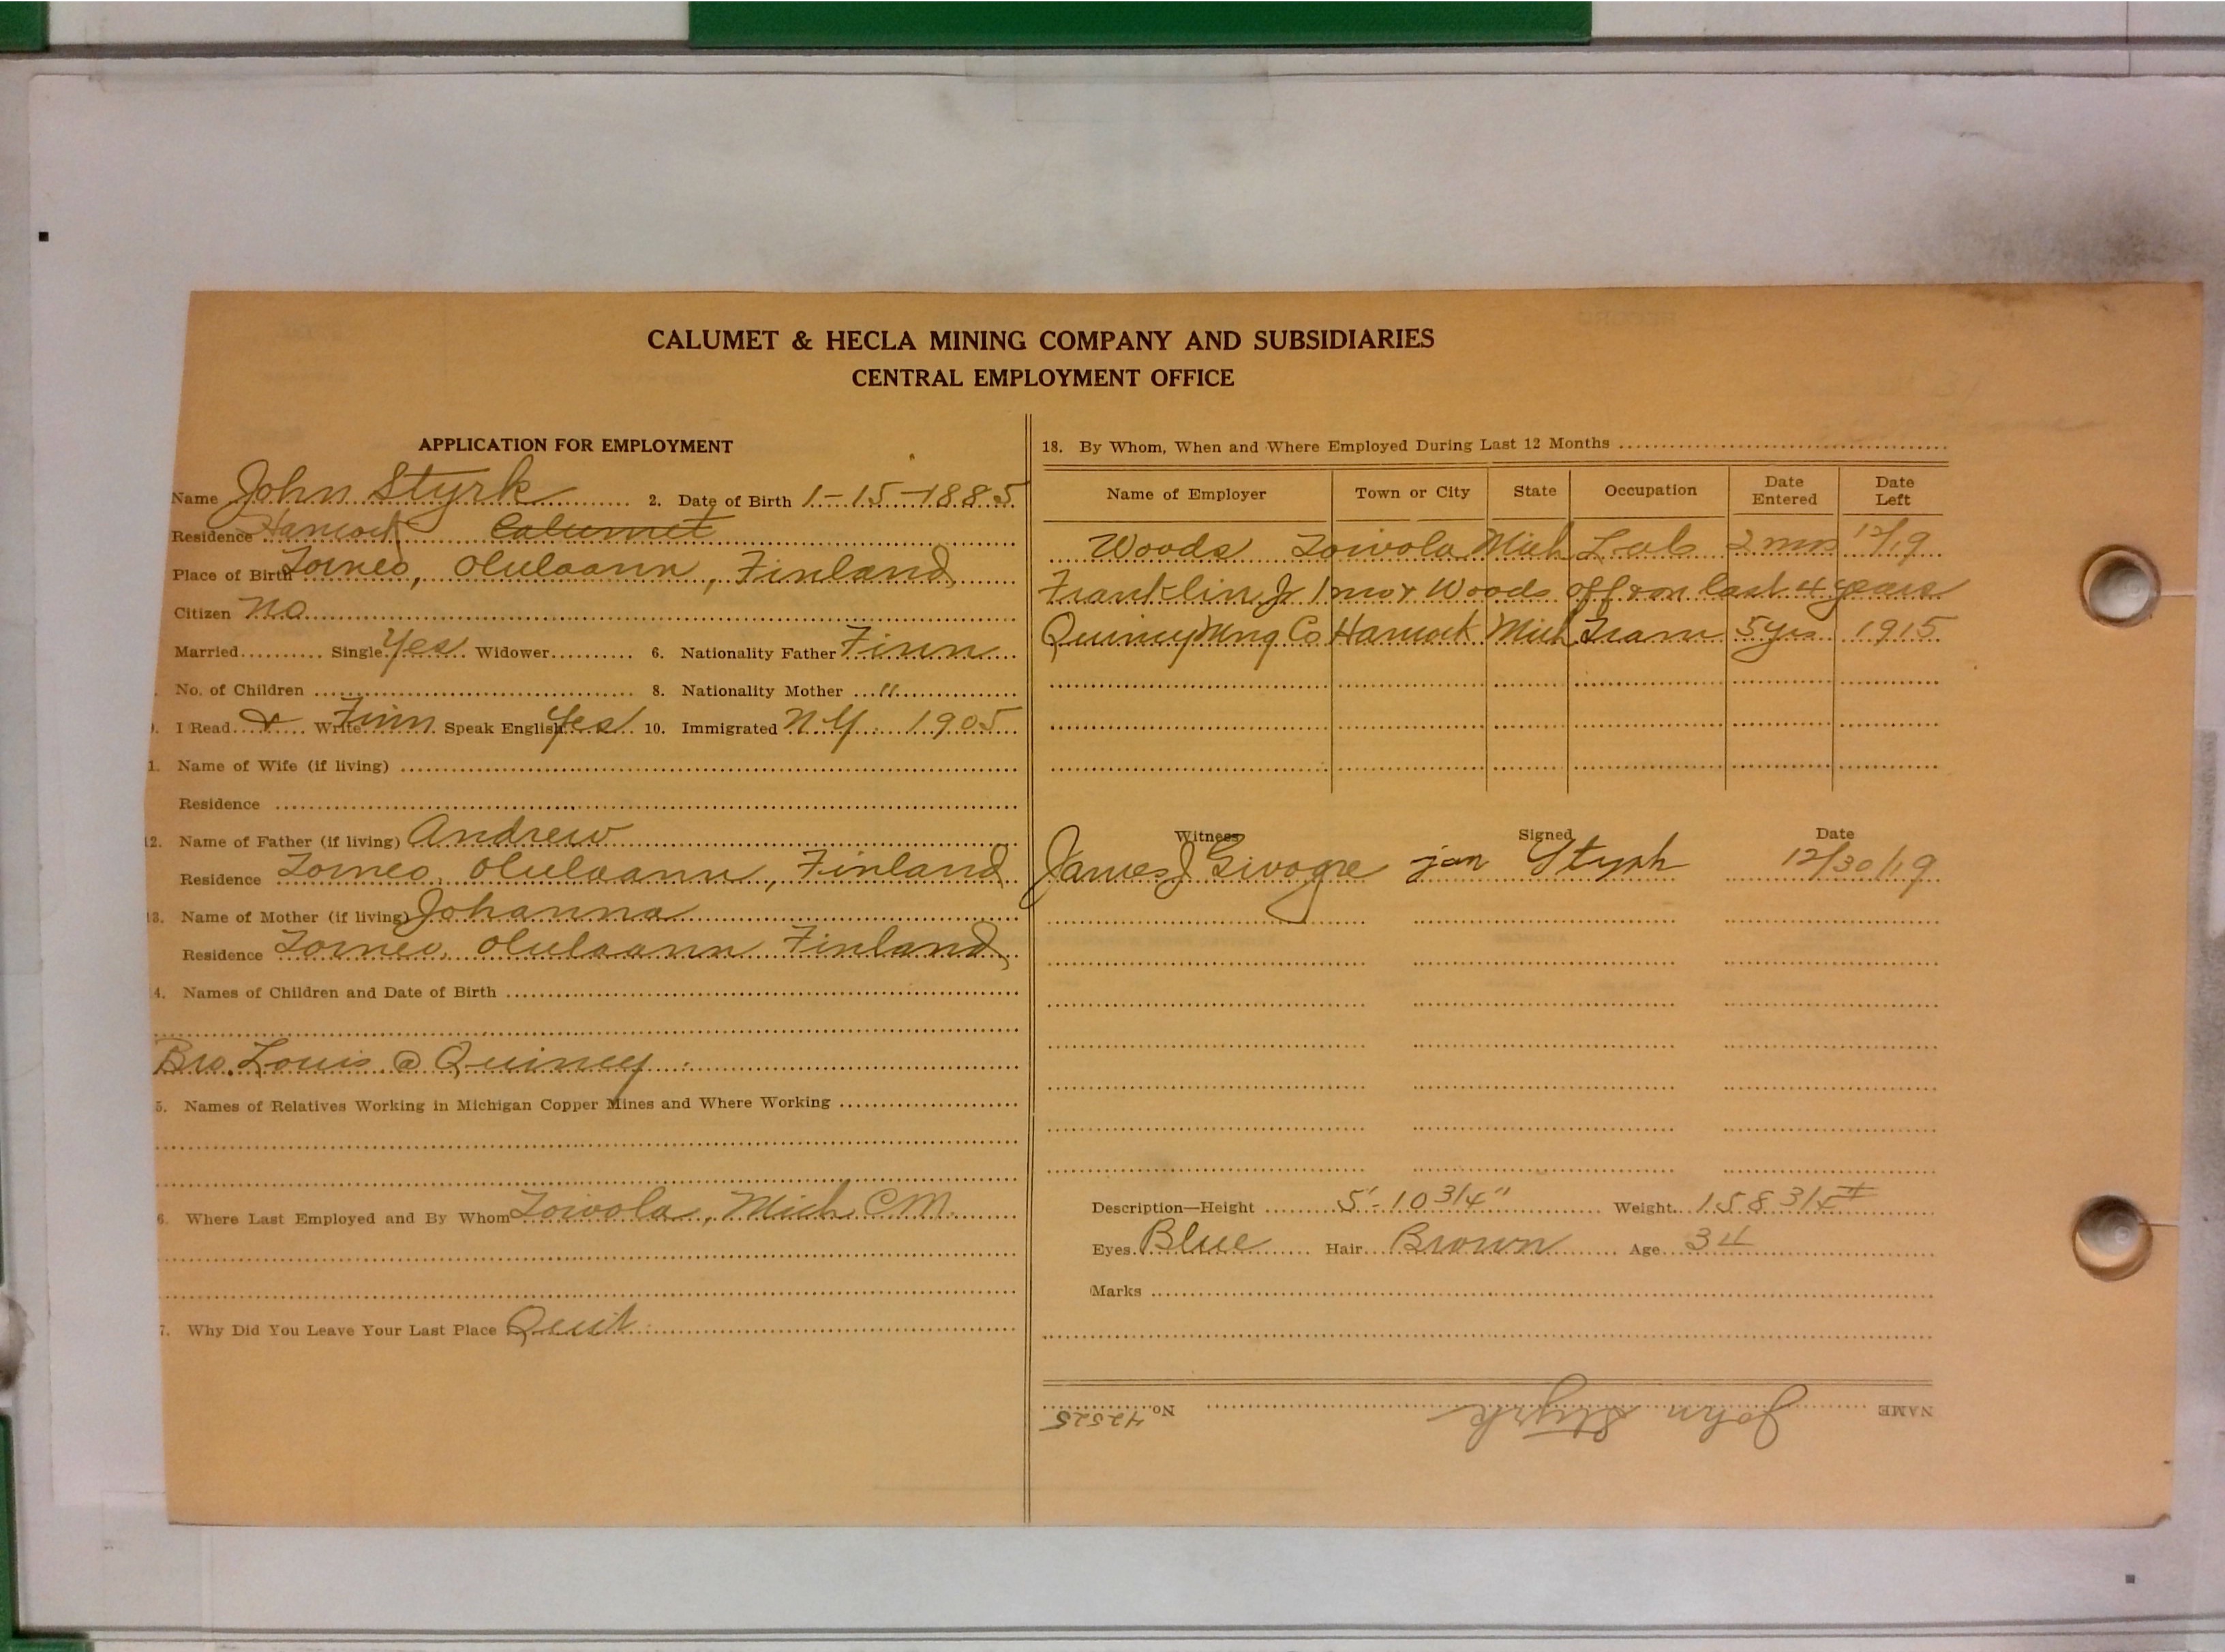 CALUMET & HECLA MINING COMPANY AND SUBSIDIARIES
CENTRAL EMPLOYMENT OFFICE
APPLICATION FOR EMPLOYMENT
Name John Styrk 2. Date of Birth 1-15-1885
Residence Hancock Calumet
Place of Birth Torneo, Olulaann, Finland
Citizen No
Married Single Yes Widower 6. Nationality Father Finn
No. of Children 8. Nationality Mother "
I Read & Write Finn Speak English Yes 10. Immigrated N.Y. 1905
1. Name of Wife (if living)
Residence
12. Name of Father (if living) Andrew
Residence Torneo, Olulaann, Finland
13. Name of Mother (if living) Johanna
Residence Torneo, Olulaann Finland
4. Names of Children and Date of Birth
Bro. Louis @ Quincy
5. Names of Relatives Working in Michigan Copper Mines and Where Working
6. Where Last Employed and By Whom Toivola, Mich. CM.
7. Why Did You Leave Your Last Place Quit
18. By Whom, When and Where Employed During Last 12 Months
Name of Employer Town or City State Occupation Date Entered Date Left
Woods Toivola Mich Lab 2 mos 12/19
Franklin Jr 1 mo & Woods off & on last 4 years
Quincy Mng Co Hancock Mich Tram 5 yrs 1915
Witness Signed Date
James J jon Styrk 12/30/19
Description—Height 5'-10 3/4" Weight 158 3/4 #
Eyes Blue Hair Brown Age 34
Marks
NAME John Styrk No. 42525